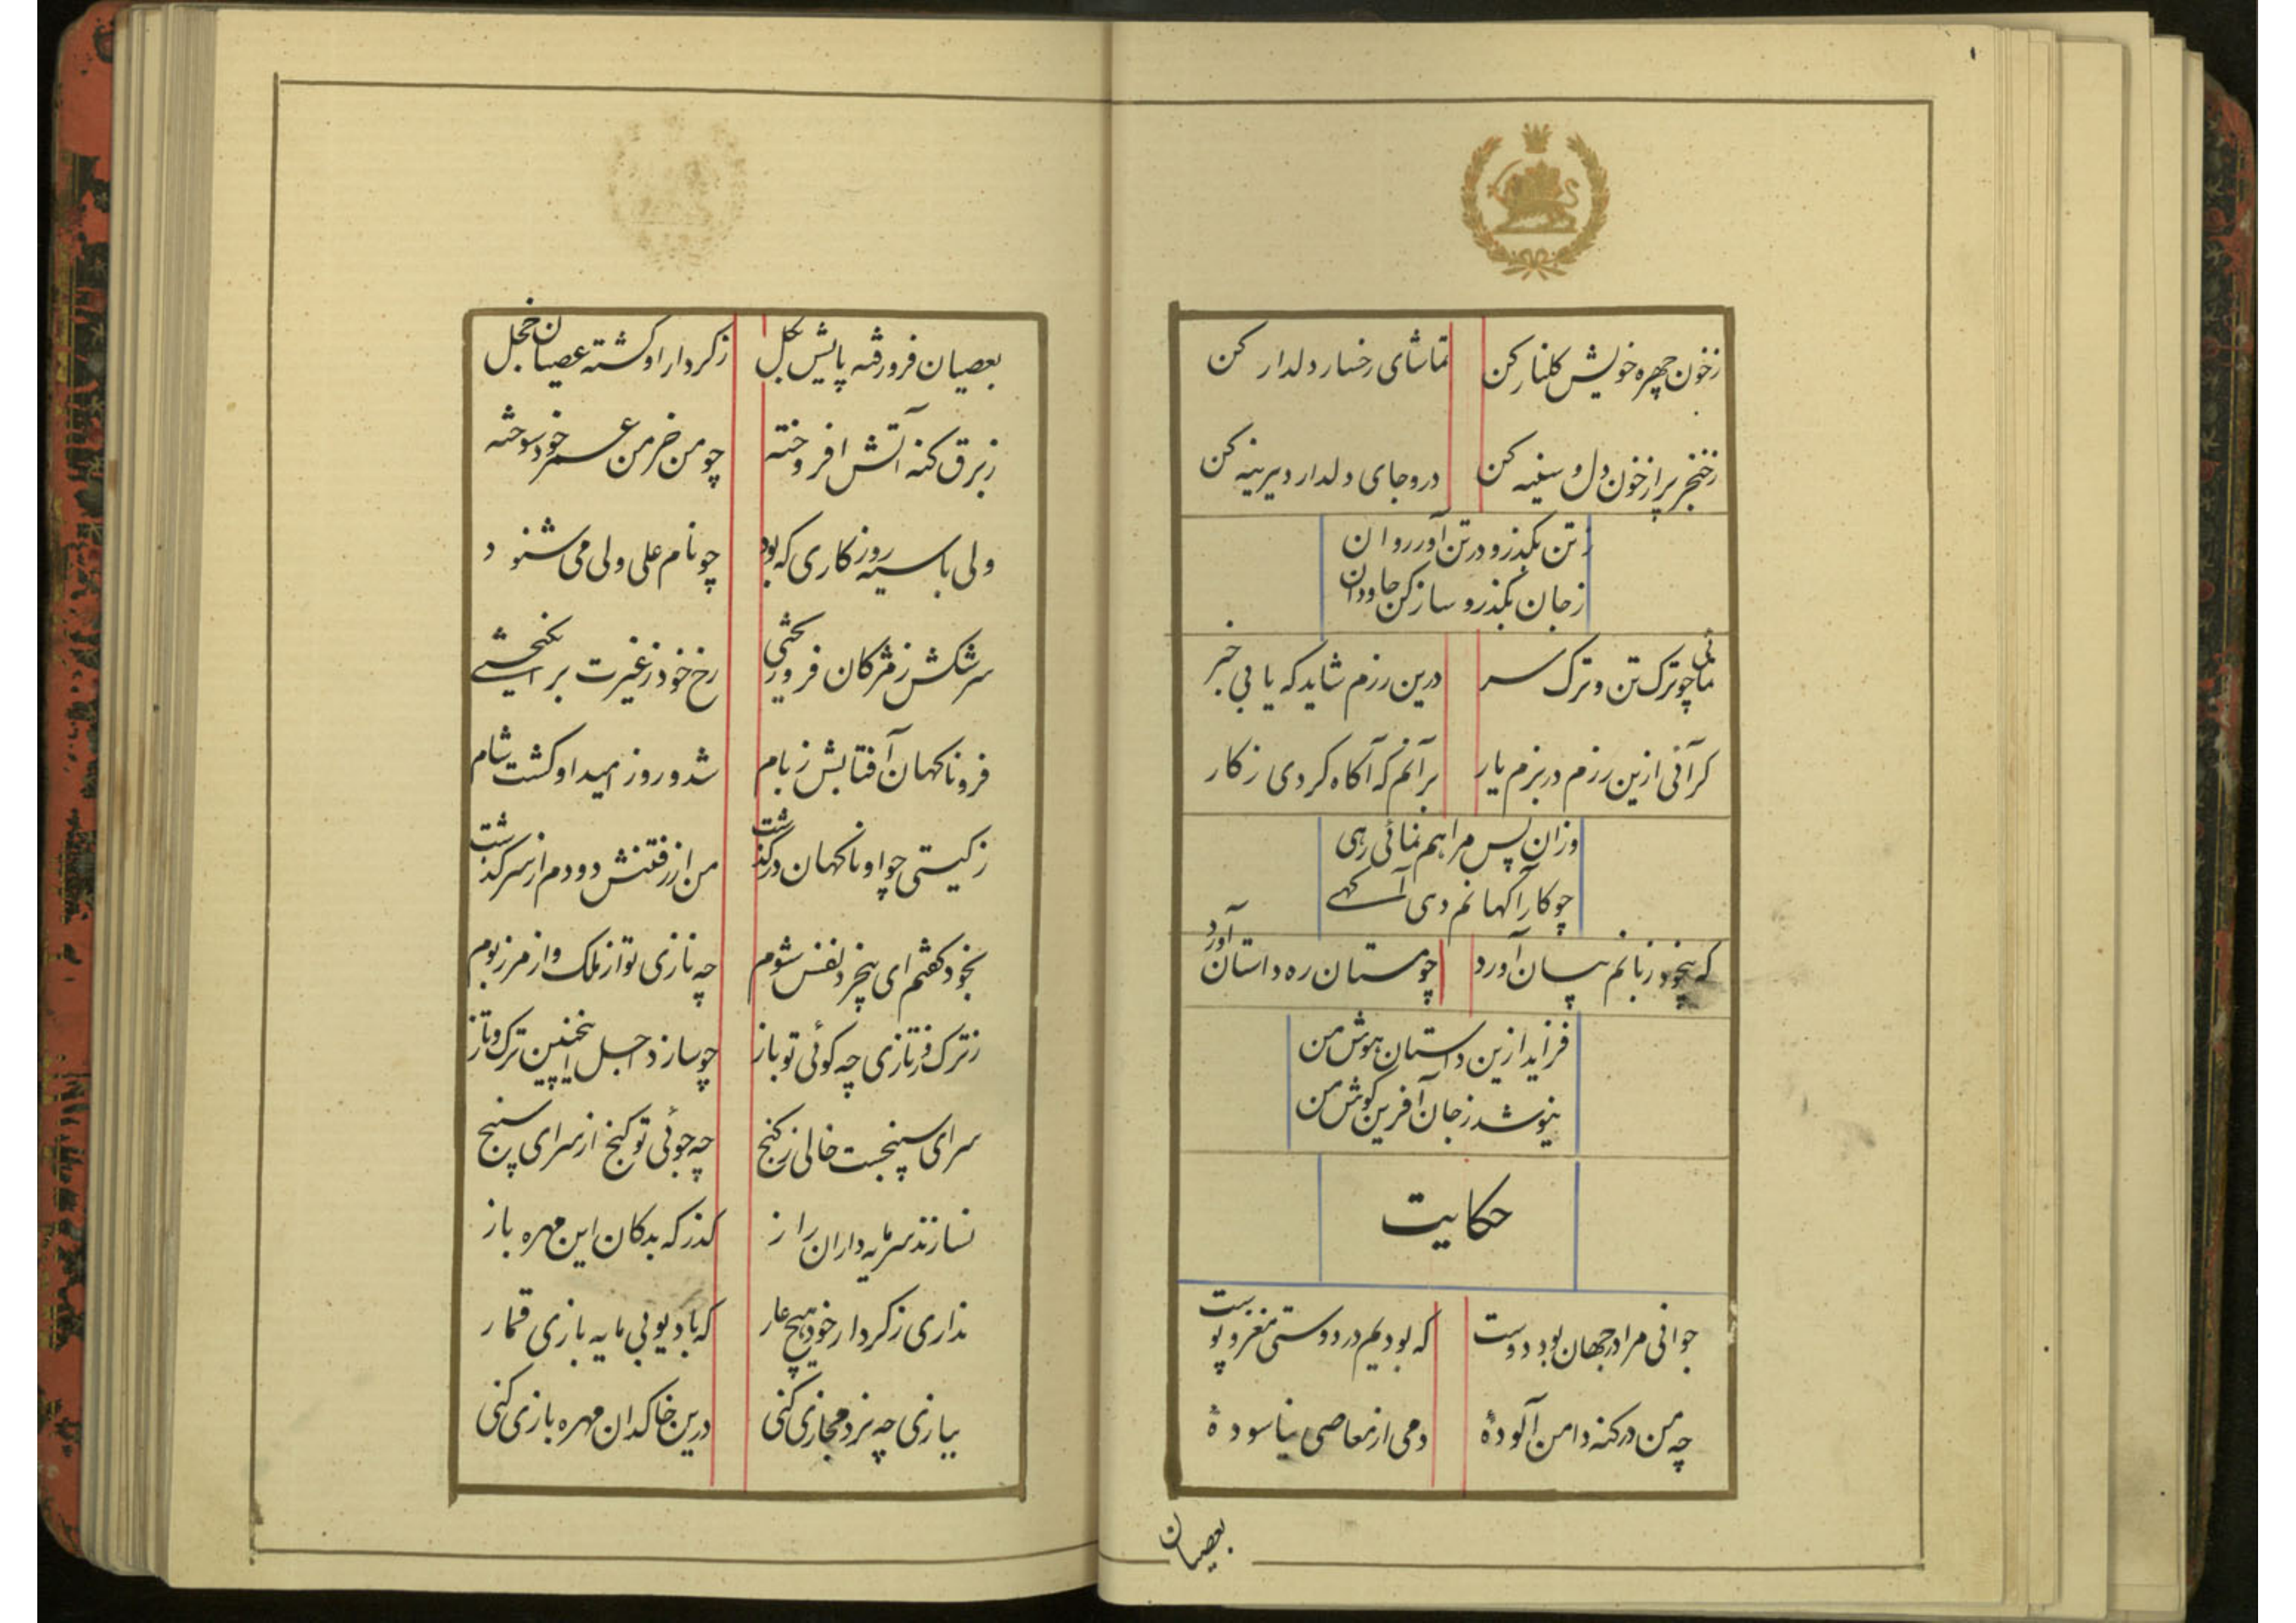 ۱
زخون چهره خویش کلنار کن تماشای رخسار دلدار کن
زخنجر پر از خون دل و سینه کن درو جای دلدار دیرینه کن
زتن بکذر و در تن آور روان
زجان بکذر و ساز کن جاودان
نمائی چو ترک تن و ترک سر درین رزم شاید که یابی خبر
کر آئی ازین رزم در بزم یار بر آنم که آکاه کردی زکار
وزان پس مرا هم نمائی رهی
چو کار آکهانم دهی آکهے
که بیخود زبانم بیان آورد چو مستان ره داستان آورد
فزاید ازین داستان هوش من
نیوشد زجان آفرین کوش من
حکایت
جوانی مرا در جهان بود دوست که بودیم در دوستی مغز و پوست
چه من در کنه دامن آلودۀ دمی از معاصی نیاسودۀ
بعصیان
بعصیان فرو رفته پایش بکل زکردار او کشته عصیان خجل
زبرق کنه آتش افروخته چو من خرمن عمر خود سوخته
ولی با سیه روزکاری که بود چو نام علی ولی می شنود
سرشکش زمژکان فرو ریختی رخ خود زغیرت بر انکیختے
فرو ناکهان آفتابش زبام شد و روز امید او کشت شام
زکیتی چو او ناکهان درکذشت من از رفتنش دودم از سر کذشت
بخود کفتم ای بیخرد نفس شوم چه نازی تو از ملک و از مرز بوم
زترک وز تازی چه کوئی تو باز چو سازد اجل اینچنین ترک و تاز
سرای سپنجست خالی زکنج چه جوئی تو کنج از سرای سپنج
نسازند سرمایه داران راز کذر که بدکان این مهره باز
نداری زکردار خود هیچ عار که با دیو بی مایه بازی قمار
ببازی چه نرد مجازی کنی درین خاکدان مهره بازی کنی